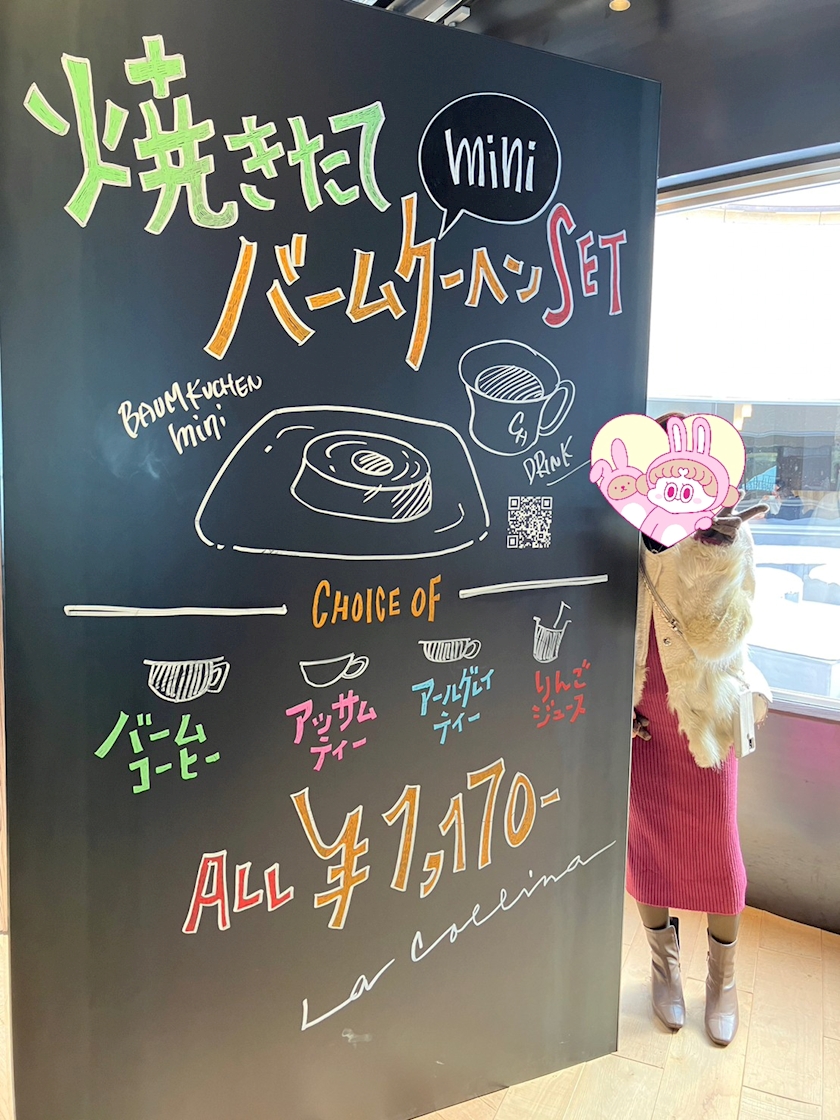 焼きたて mini
バームクーヘンSET
BAUMKUCHEN
mini
DRINK
CHOICE OF
バーム
コーヒー
アッサム
ティー
アールグレイ
ティー
りんご
ジュース
ALL ¥1,170-
La Collina